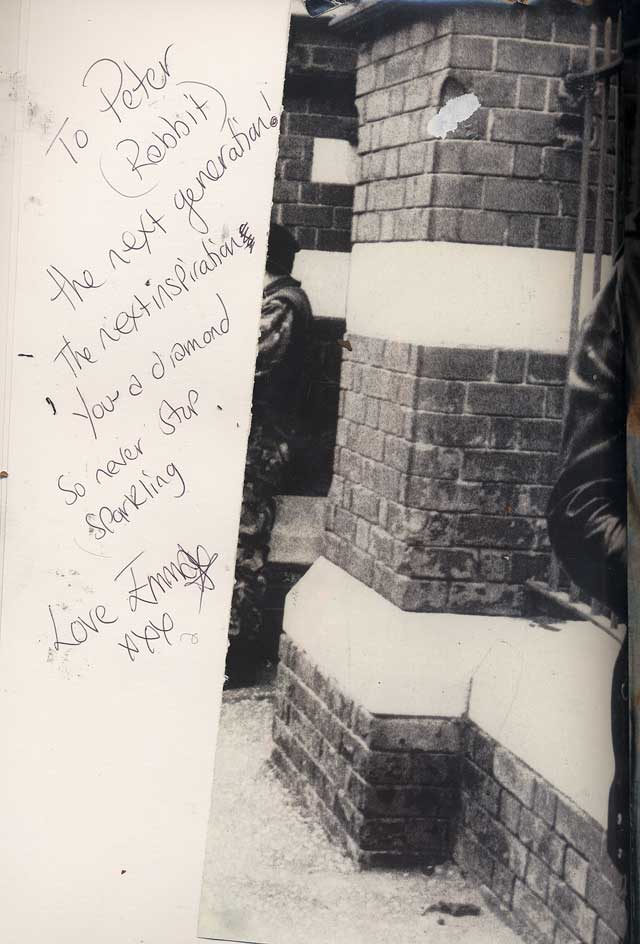 To Peter
(Rabbit)
the next generation!
The next inspiration
You a diamond
So never stop
sparkling
Love Emma
xxx